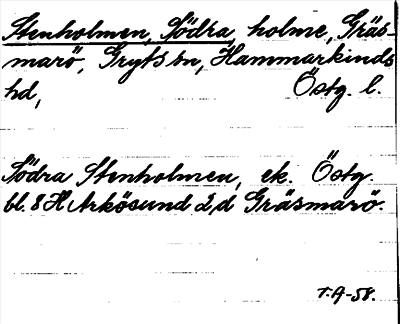 Stenholmen, Södra, holme, Gräs-
marö, Gryts sn, Hammarkinds
hd, Östg. l.
Södra Stenholmen, ek. Östg.
bl. 8 H Arkösund 2,d Gräsmarö.
T.A-58.